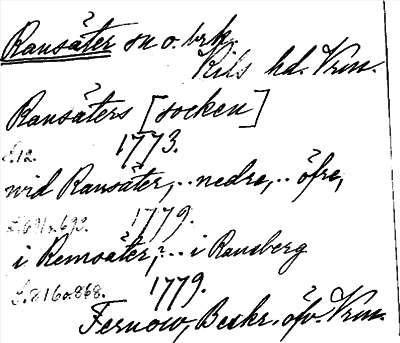 Ransäter sn o. brk.
Kils hd. Vrm.
Ransäters [socken]
s. 12. 1773.
wid Ransäter, .. nedre, .. öfre,
s. 691 o. 692. 1779.
i Remsäter, .. i Ransberg
s. 816 o. 868. 1779.
Fernow, Beskr. öfv. Vrm.